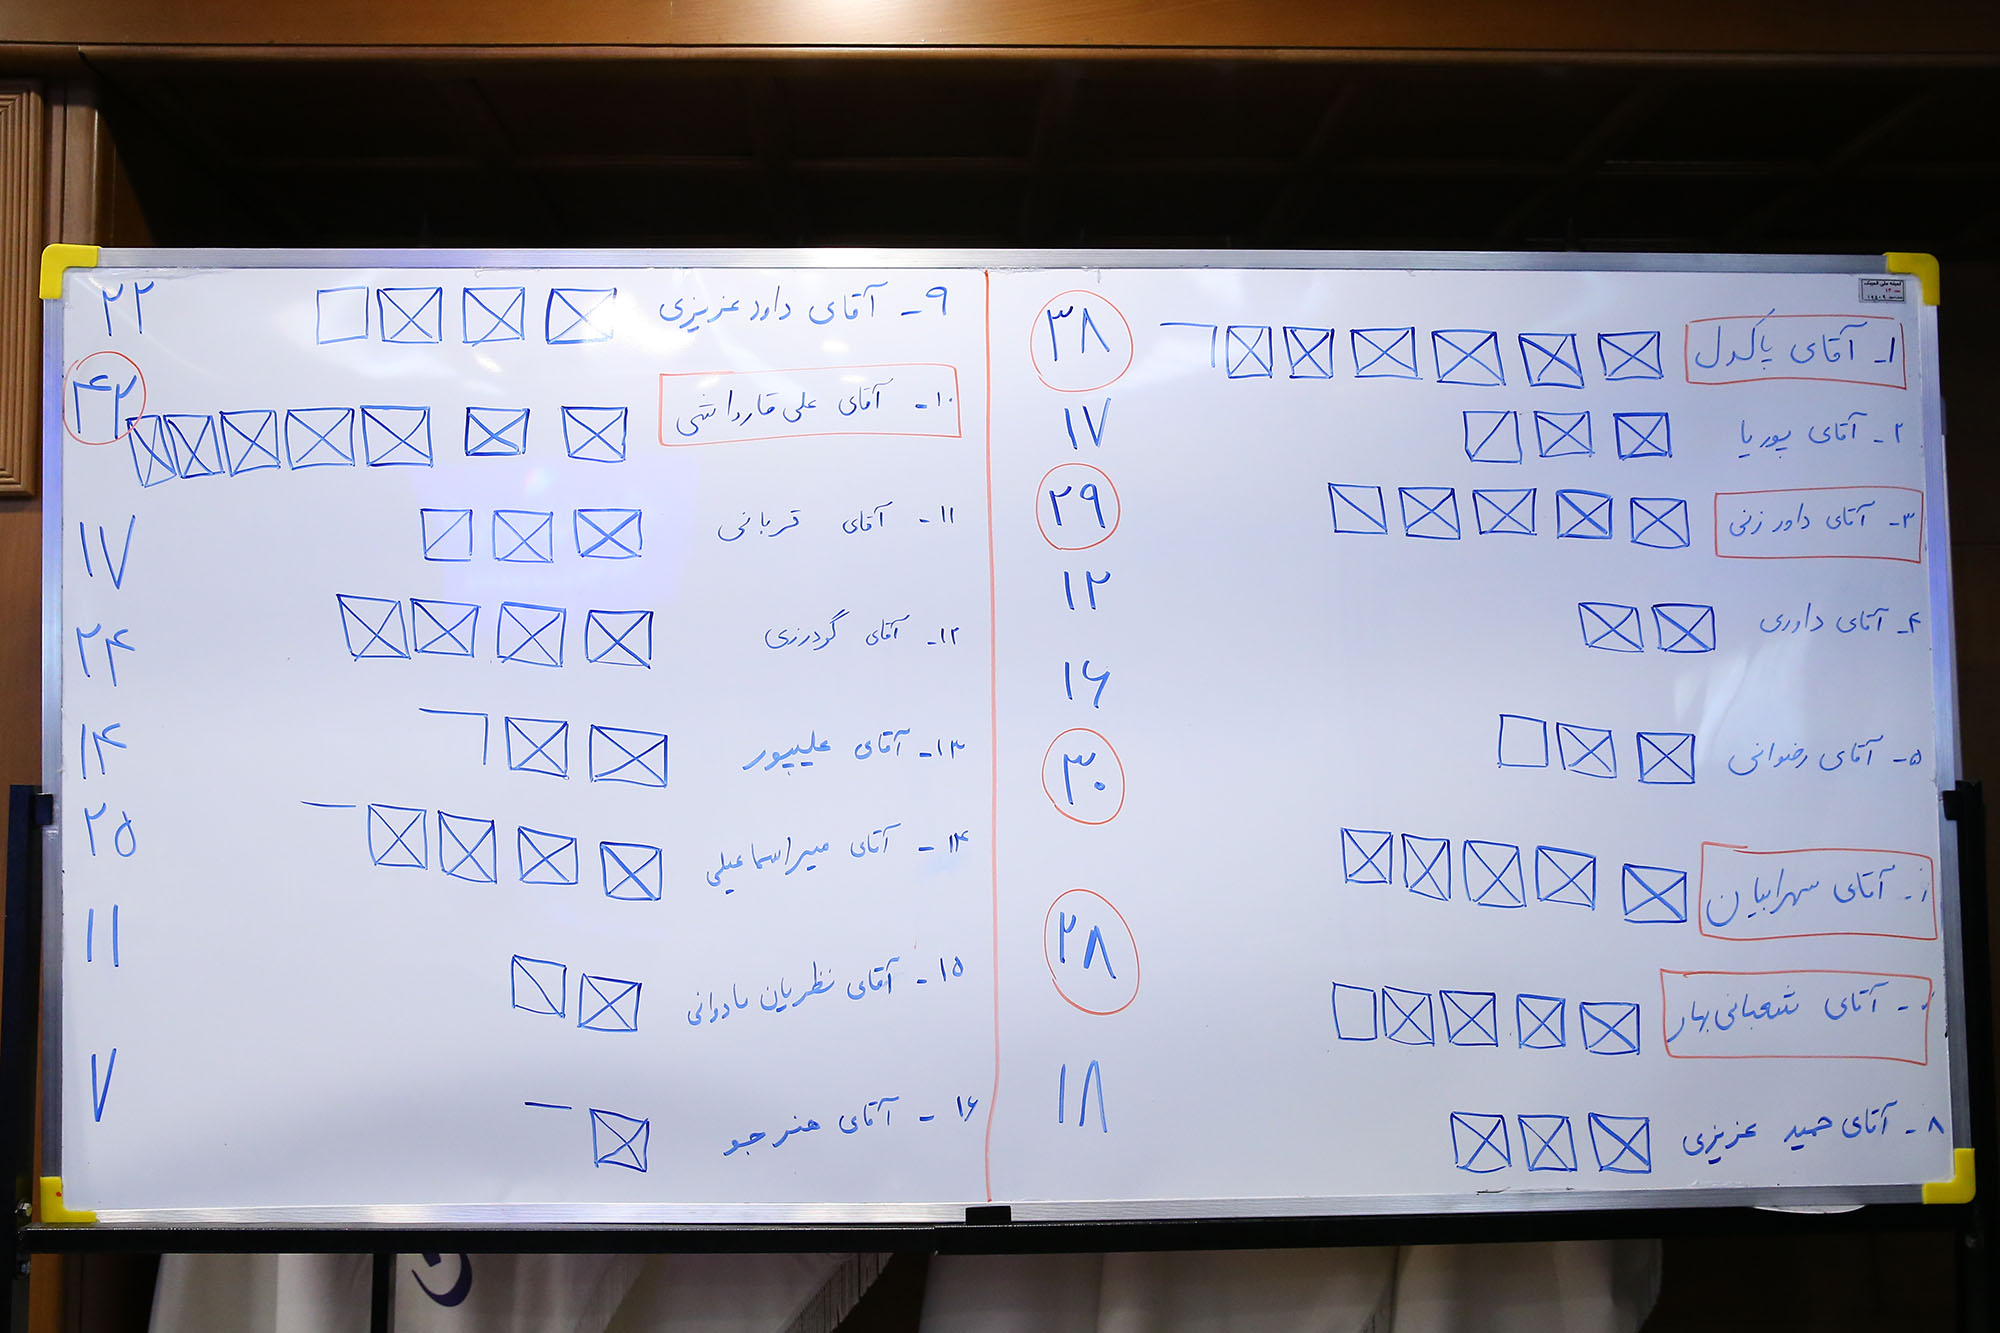 ۱ـ آقای پاکدل ۳۸
۲ـ آقای پوریا ۱۷
۳ـ آقای داورزنی ۲۹
۴ـ آقای داوری ۱۲
۵ـ آقای رضوانی ۱۶
ـ آقای سهرابیان ۳۰
ـ آقای شعبانی بهار ۲۸
۸ـ آقای حمید عزیزی ۱۸
۹ـ آقای داود عزیزی ۲۲
۱۰ـ آقای علی قارداشی ۴۲
۱۱ـ آقای قربانی ۱۷
۱۲ـ آقای گودرزی ۲۴
۱۳ـ آقای علیپور ۱۴
۱۴ـ آقای میراسماعیلی ۲۵
۱۵ـ آقای نظریان مادوانی ۱۱
۱۶ـ آقای هنرجو ۷